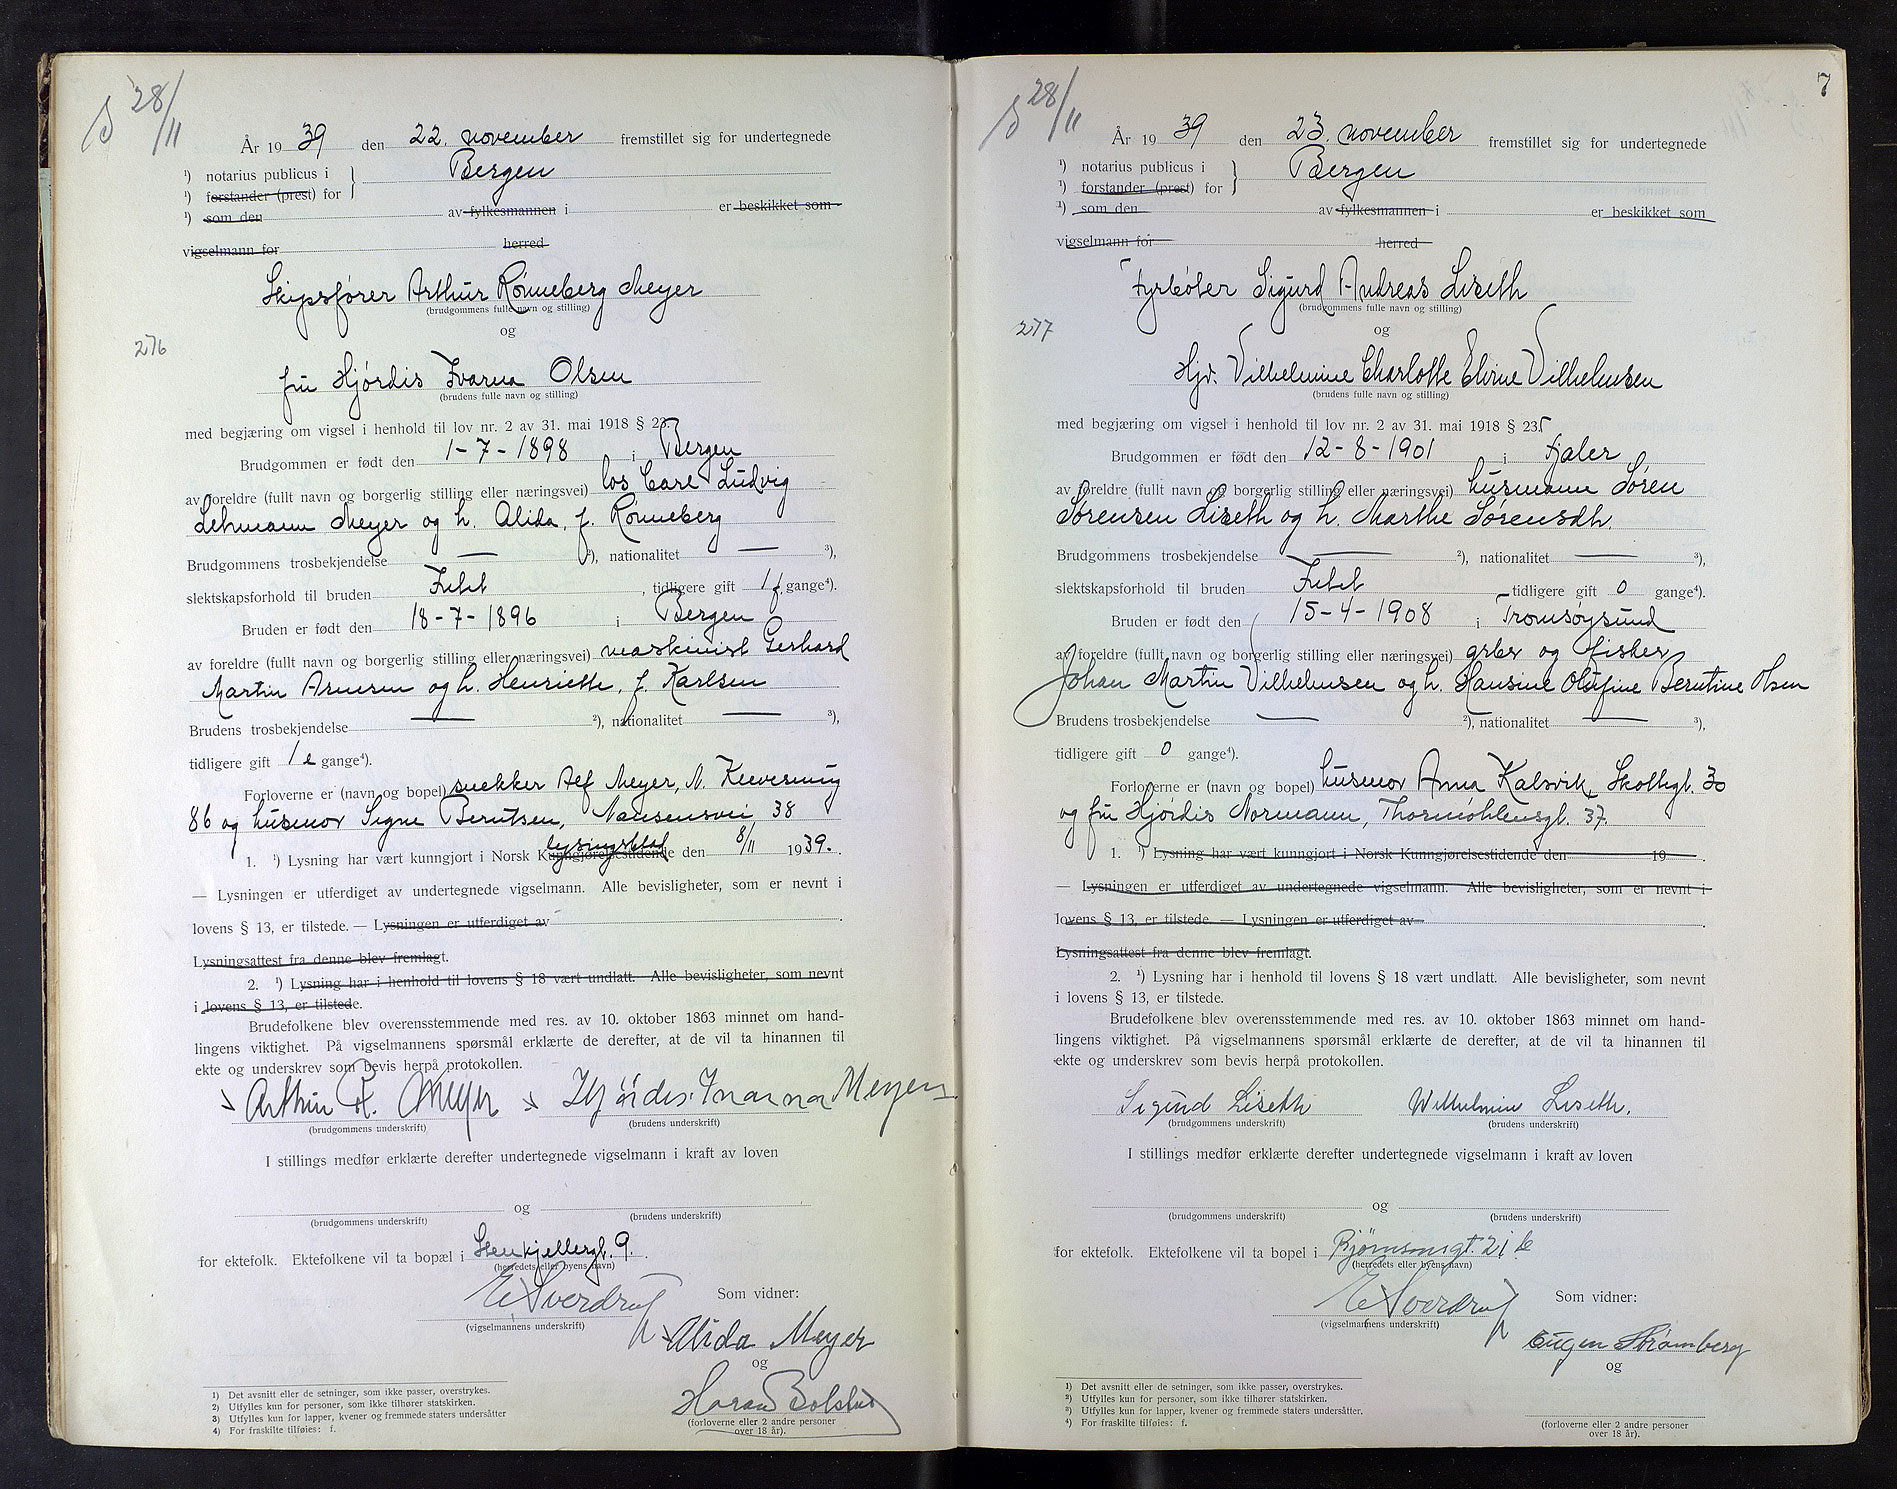 28/11
År 1939 den 22. november fremstillet sig for undertegnede
¹) notarius publicus i Bergen
¹) forstander (prest) for
¹) som den av fylkesmannen i er beskikket som
vigselmann for herred
Skipsfører Arthur Rønneberg Meyer
(brudgommens fulle navn og stilling)
og
276
fru Hjørdis Ivarna Olsen
(brudens fulle navn og stilling)
med begjæring om vigsel i henhold til lov nr. 2 av 31. mai 1918 § 23.
Brudgommen er født den 1-7-1898 i Bergen
av foreldre (fullt navn og borgerlig stilling eller næringsvei) los Carl Ludvig
Lehmann Meyer og h. Alida, f. Rønneberg
Brudgommens trosbekjendelse — ²), nationalitet — ³),
slektskapsforhold til bruden Intet, tidligere gift 1 f. gange⁴).
Bruden er født den 18-7-1896 i Bergen
av foreldre (fullt navn og borgerlig stilling eller næringsvei) maskinist Gerhard
Martin Arnesen og h. Henriette, f. Karlsen
Brudens trosbekjendelse — ²), nationalitet — ³),
tidligere gift 1 e gange⁴).
Forloverne er (navn og bopel) snekker Alf Meyer, N.
86 og husmor Signe Berntsen, Nansensvei 38
lysingsblad
1. ¹) Lysning har vært kunngjort i Norsk Kunngjørelsestidende den 8/11 1939.
— Lysningen er utferdiget av undertegnede vigselmann. Alle bevisligheter, som er nevnt i
lovens § 13, er tilstede. — Lysningen er utferdiget av
Lysningsattest fra denne blev fremlagt.
2. ¹) Lysning har i henhold til lovens § 18 vært undlatt. Alle bevisligheter, som nevnt
i lovens § 13, er tilstede.
Brudefolkene blev overensstemmende med res. av 10. oktober 1863 minnet om hand-
lingens viktighet. På vigselmannens spørsmål erklærte de derefter, at de vil ta hinannen til
ekte og underskrev som bevis herpå protokollen.
Arthur R. Meyer Hjørdis Ivarna Meyer
(brudgommens underskrift) (brudens underskrift)
I stillings medfør erklærte derefter undertegnede vigselmann i kraft av loven
og
(brudgommens underskrift) (brudens underskrift)
for ektefolk. Ektefolkene vil ta bopæl i Stenkjellergt. 9.
(herredets eller byens navn)
E Sverdrup
(vigselmannens underskrift)
Som vidner:
Alida Meyer
og
Bolstad
(forloverne eller 2 andre personer
over 18 år).
¹) Det avsnitt eller de setninger, som ikke passer, overstrykes.
²) Utfylles kun for personer, som ikke tilhører statskirken.
³) Utfylles kun for lapper, kvener og fremmede staters undersåtter
⁴) For fraskilte tilføies: f.
7
28/11
År 1939 den 23. november fremstillet sig for undertegnede
¹) notarius publicus i Bergen
¹) forstander (prest) for
¹) som den av fylkesmannen i er beskikket som
vigselmann for herred
fyrbøter Sigurd Andreas Liseth
(brudgommens fulle navn og stilling)
og
277
Hjv. Vilhelmine Charlotte Elvine Vilhelmsen
(brudens fulle navn og stilling)
med begjæring om vigsel i henhold til lov nr. 2 av 31. mai 1918 § 23.
Brudgommen er født den 12-8-1901 i Fjaler
av foreldre (fullt navn og borgerlig stilling eller næringsvei) husmann Søren
Sørensen Liseth og h. Marthe Sørensdtr.
Brudgommens trosbekjendelse — ²), nationalitet — ³),
slektskapsforhold til bruden Intet tidligere gift 0 gange⁴).
Bruden er født den 15-4-1908 i Tromsøysund
av foreldre (fullt navn og borgerlig stilling eller næringsvei) grbr og fisker
Johan Martin Vilhelmsen og h. Hansine Olufine Berntine Olsen
Brudens trosbekjendelse — ²), nationalitet — ³),
tidligere gift 0 gange⁴).
Forloverne er (navn og bopel) husmor Anna Kalsvik, Skottegt. 30
og fru Hjørdis Normann, Thormøhlensgt. 37.
1. ¹) Lysning har vært kunngjort i Norsk Kunngjørelsestidende den 19 .
— Lysningen er utferdiget av undertegnede vigselmann. Alle bevisligheter, som er nevnt i
lovens § 13, er tilstede. — Lysningen er utferdiget av
Lysningsattest fra denne blev fremlagt.
2. ¹) Lysning har i henhold til lovens § 18 vært undlatt. Alle bevisligheter, som nevnt
i lovens § 13, er tilstede.
Brudefolkene blev overensstemmende med res. av 10. oktober 1863 minnet om hand-
lingens viktighet. På vigselmannens spørsmål erklærte de derefter, at de vil ta hinannen til
ekte og underskrev som bevis herpå protokollen.
Sigurd Liseth Wilhelmine Liseth.
(brudgommens underskrift) (brudens underskrift)
I stillings medfør erklærte derefter undertegnede vigselmann i kraft av loven
og
(brudgommens underskrift) (brudens underskrift)
for ektefolk. Ektefolkene vil ta bopel i Bjørnsonsgt. 21 b
(herredets eller byens navn)
E Sverdrup
(vigselmannens underskrift)
Som vidner:
Eugen Strømberg
og
(forloverne eller 2 andre personer
over 18 år).
¹) Det avsnitt eller de setninger, som ikke passer, overstrykes.
²) Utfylles kun for personer, som ikke tilhører statskirken.
³) Utfylles kun for lapper, kvener og fremmede staters undersåtter.
⁴) For fraskilte tilføies: f.